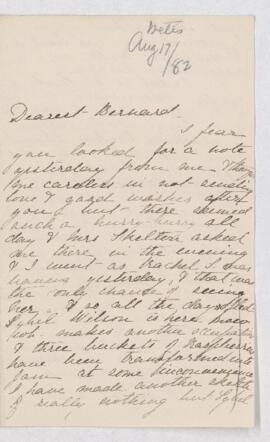 Aug 17/
/82
Dearest Bernard.
I fear
you looked for a note
yesterday from me. &
me careless in not sending
love & good wishes after
you but there seemed
such a hurry-hurry all
day & Mrs Skelton asked
me there in the evening
& I went as Rachel I was
yesterday & that was
the only chance of seeing
her, & so all the day
Wilson is here now
makes another occupation
& three buckets of raspberries
have been transformed into
jam at some inconvenience
I have made another
really nothing but